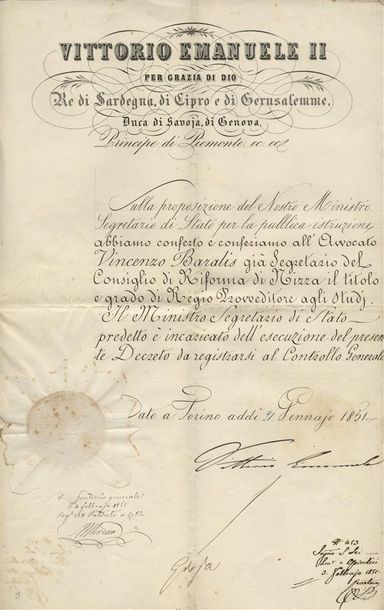 VITTORIO EMANUELE II
PER GRAZIA DI DIO
Re di Sardegna, di Cipro e di Gerusalemme,
Duca di Savoja, di Genova,
Principe di Piemonte, ec. ec.
Sulla proposizione del Nostro Ministro
Segretario di Stato per la pubblica istruzione
abbiamo conferto e conferiamo all' Avvocato
Vincenzo Baralis già Segretario del
Consiglio di Riforma di Nizza il titolo
e grado di Regio Provveditore agli Studj.
Il Ministro Segretario di Stato
predetto è incaricato dell' esecuzione del presen
te Decreto da registrarsi al Controllo Generale
Dato a Torino addì 21 Gennajo 1851.
Vittorio Emanuele
generale
febbrajo 1851
Gioja
N° 413
3. Febbrajo 1851.